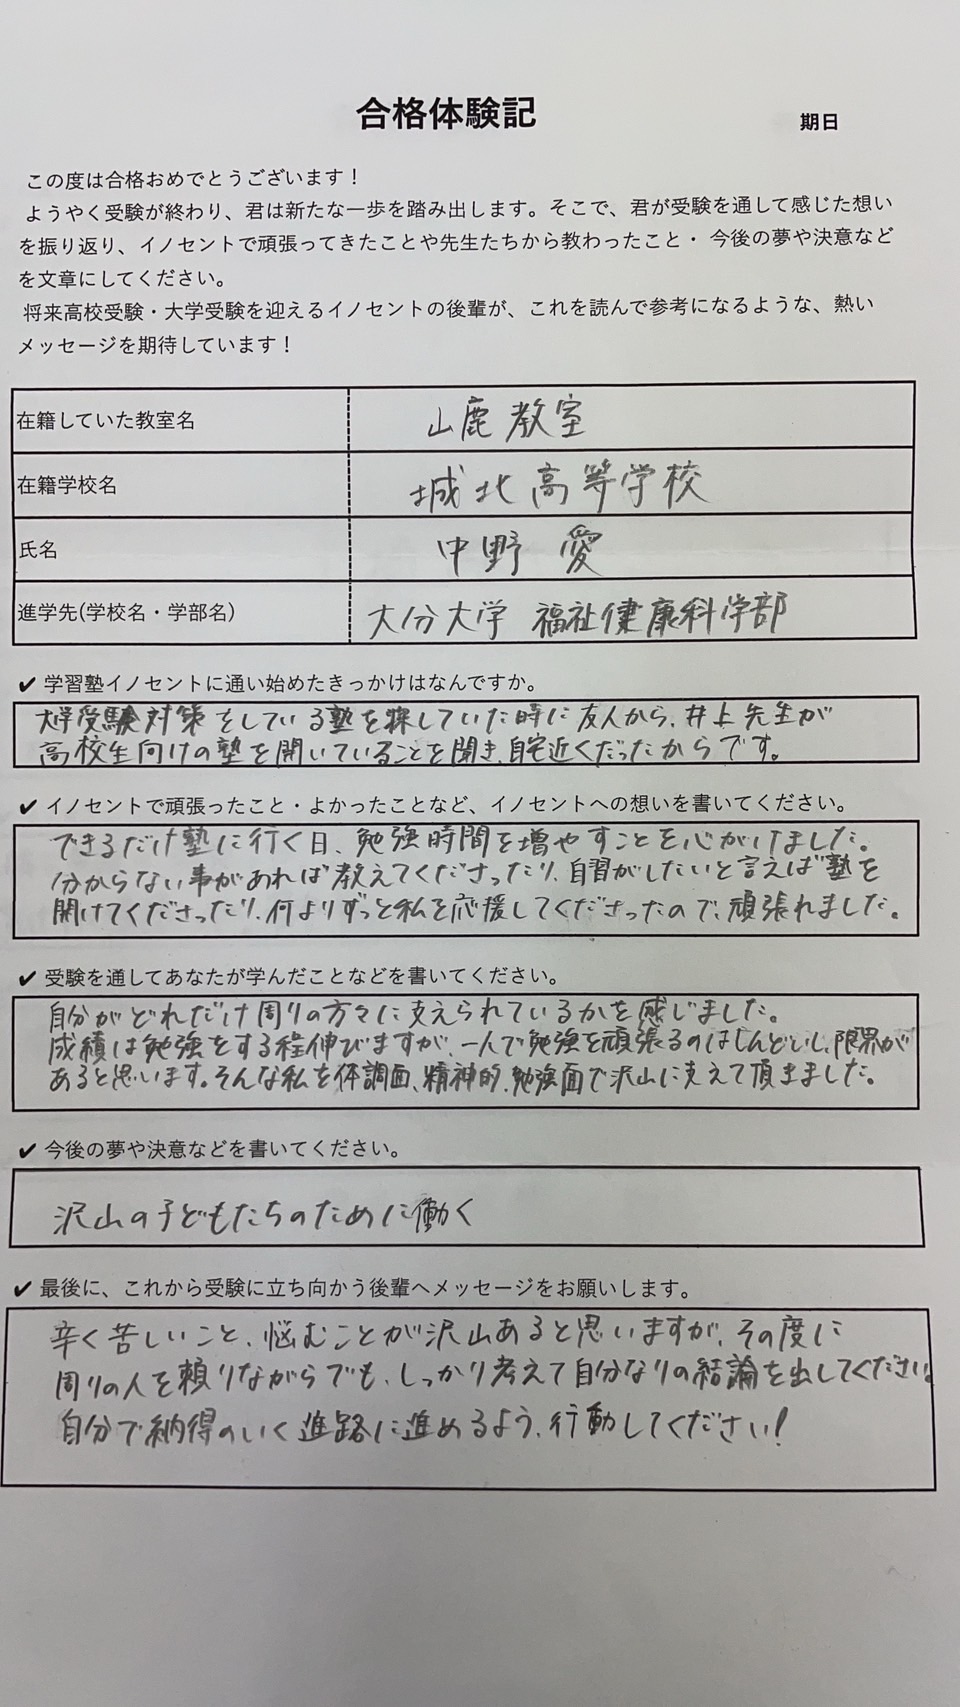 合格体験記
期日
この度は合格おめでとうございます！
ようやく受験が終わり、君は新たな一歩を踏み出します。そこで、君が受験を通して感じた想い
を振り返り、イノセントで頑張ってきたことや先生たちから教わったこと・ 今後の夢や決意など
を文章にしてください。
将来高校受験・大学受験を迎えるイノセントの後輩が、これを読んで参考になるような、熱い
メッセージを期待しています！
在籍していた教室名 山鹿教室
在籍学校名 城北高等学校
氏名 中野 愛
進学先(学校名・学部名) 大分大学 福祉健康科学部
✔ 学習塾イノセントに通い始めたきっかけはなんですか。
大学受験対策をしている塾を探していた時に友人から、井上先生が
高校生向けの塾を開いていることを聞き、自宅近くだったからです。
✔ イノセントで頑張ったこと・よかったことなど、イノセントへの想いを書いてください。
できるだけ塾に行く日、勉強時間を増やすことを心がけました。
分からない事があれば教えてくださったり、自習がしたいと言えば塾を
開けてくださったり、何よりずっと私を応援してくださったので、頑張れました。
✔ 受験を通してあなたが学んだことなどを書いてください。
自分がどれだけ周りの方々に支えられているかを感じました。
成績は勉強をする程伸びますが、一人で勉強を頑張るのはしんどいし、限界が
あると思います。そんな私を体調面、精神的、勉強面で沢山に支えて頂きました。
✔ 今後の夢や決意などを書いてください。
沢山の子どもたちのために働く
✔ 最後に、これから受験に立ち向かう後輩へメッセージをお願いします。
辛く苦しいこと、悩むことが沢山あると思いますが、その度に
周りの人を頼りながらでも、しっかり考えて自分なりの結論を出してください。
自分で納得のいく進路に進めるよう、行動してください！